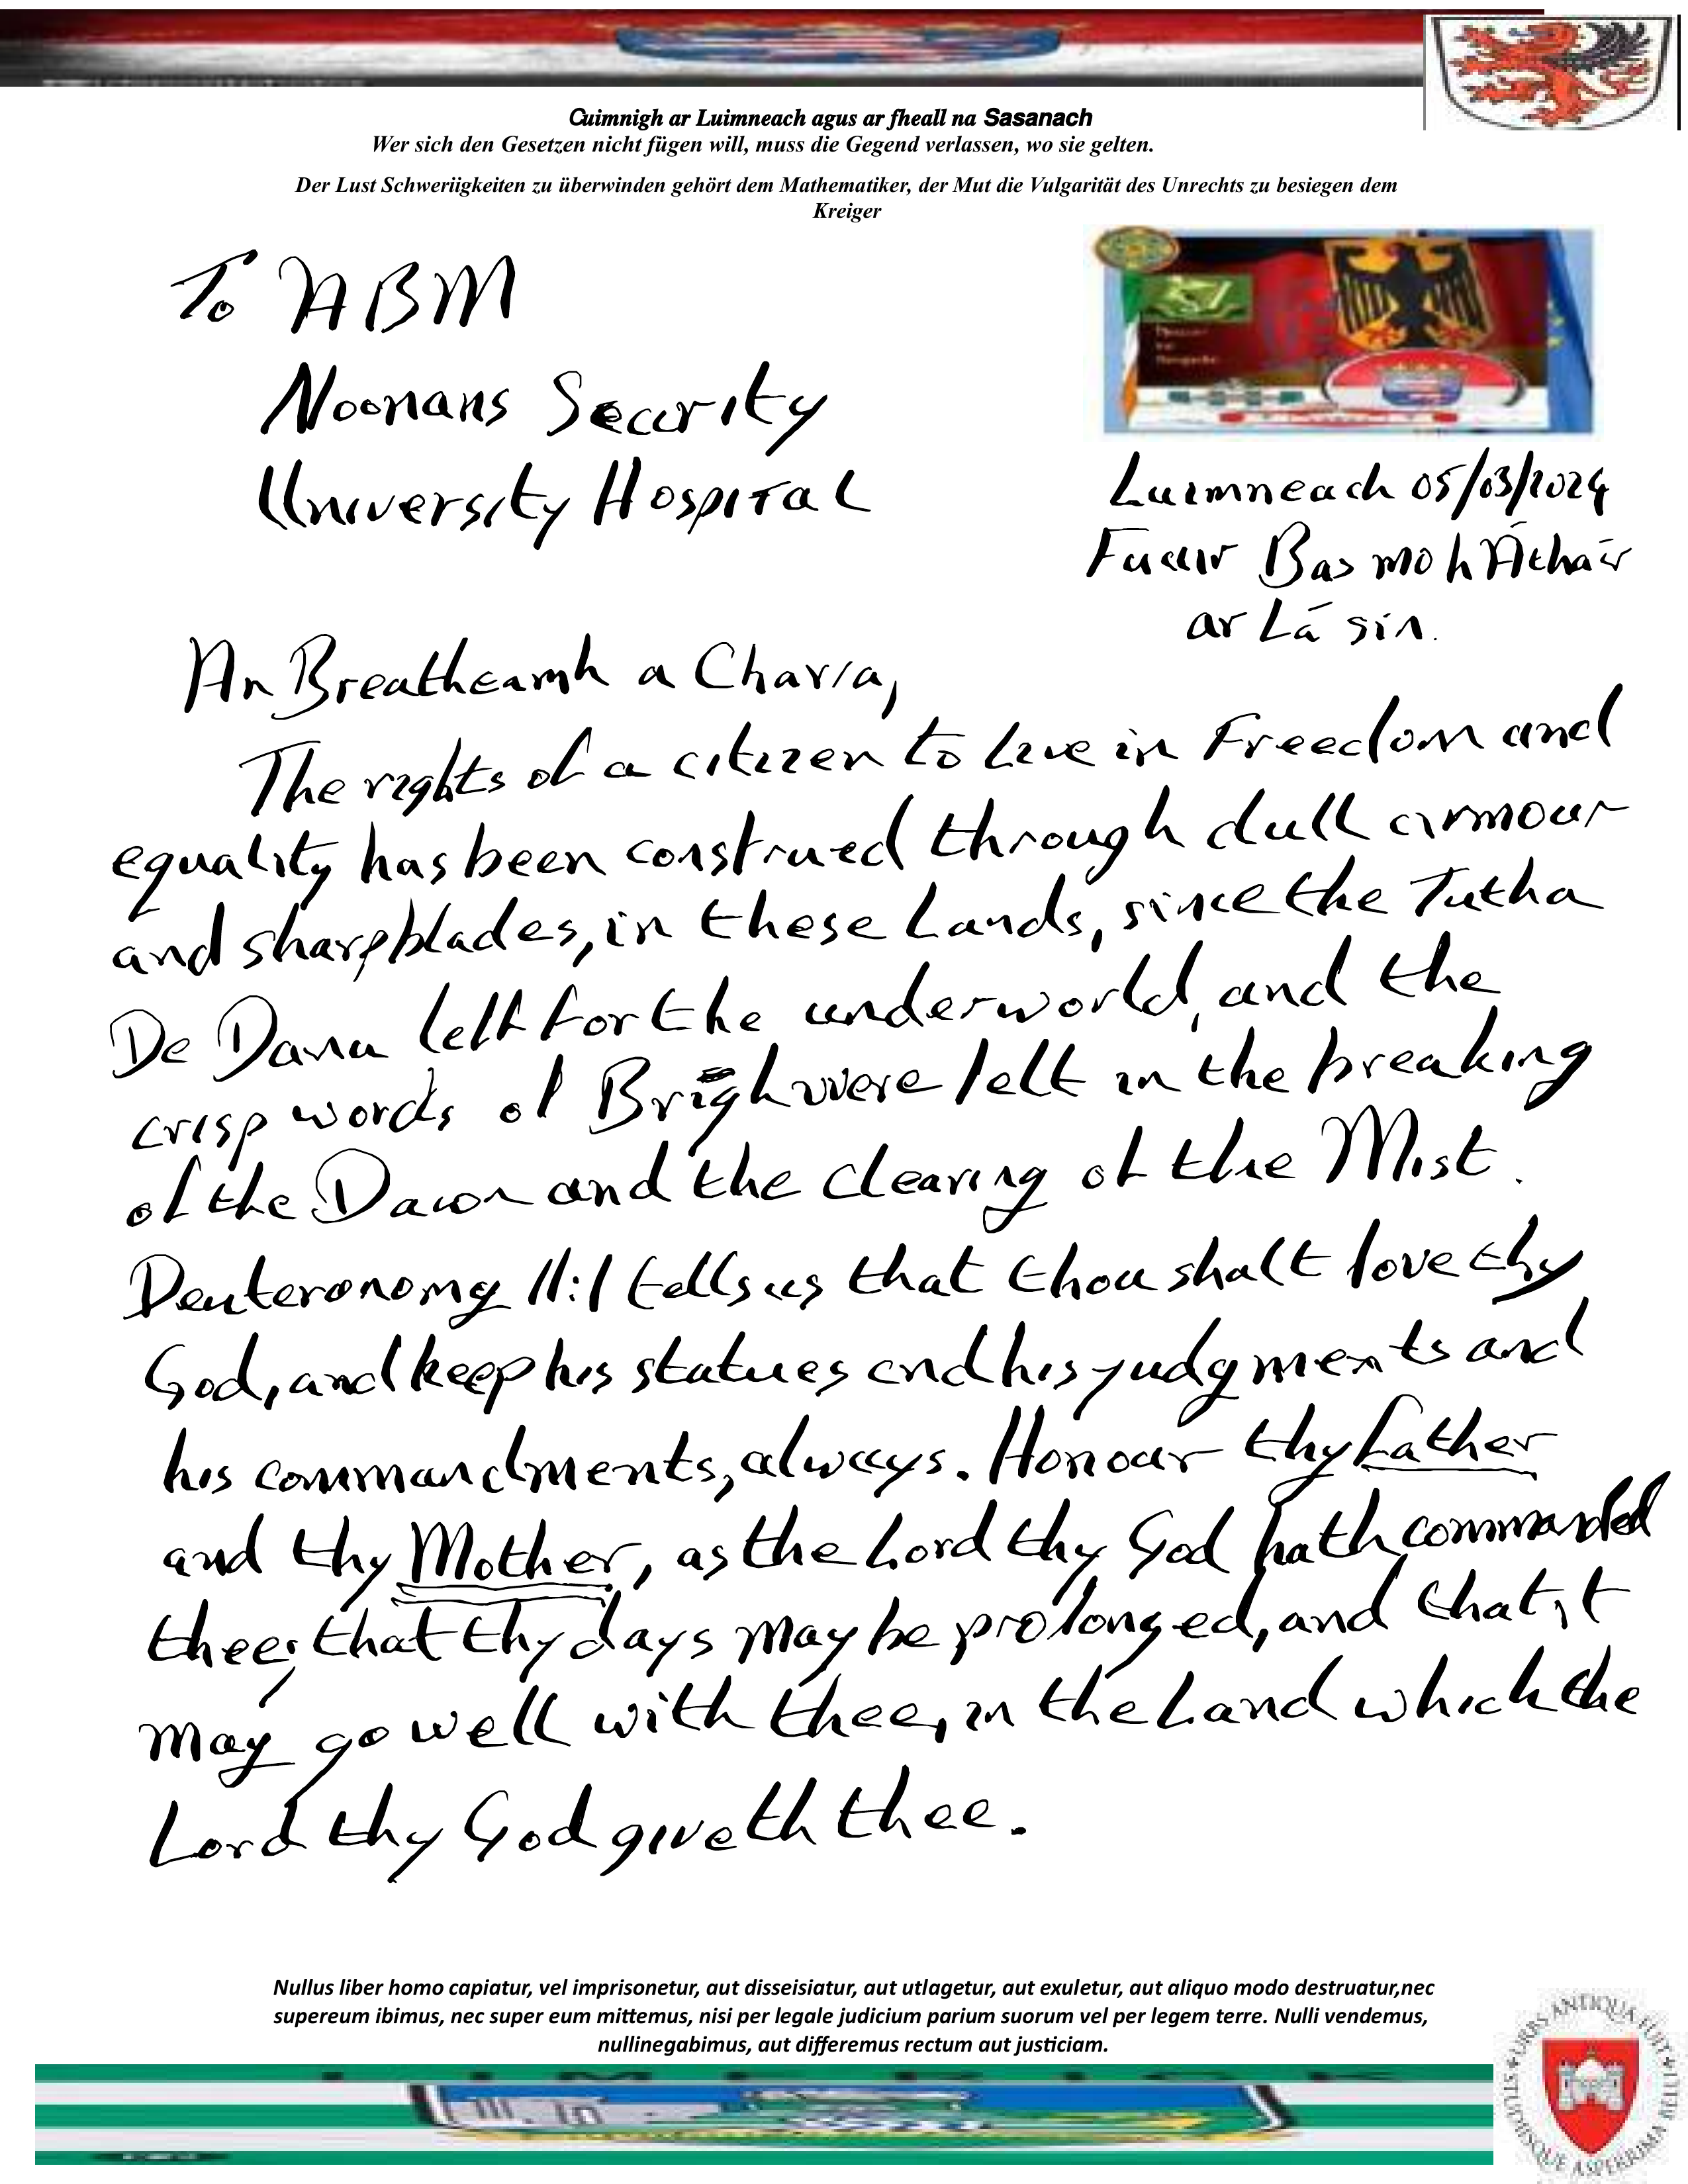 Cuimnigh ar Luimneach agus ar fheall na Sasanach
Wer sich den Gesetzen nicht fügen will, muss die Gegend verlassen, wo sie gelten.
Der Lust Schweriigkeiten zu überwinden gehört dem Mathematiker, der Mut die Vulgarität des Unrechts zu besiegen dem
Kreiger
To ABM
Noonans Security
University Hospital
Luimneach 05/03/2024
Fuair Bas mo hÁthair
ar Lá sin.
An Breatheamh a Chara,
The rights of a citizen to live in Freedom and
equality has been construed through dull armour
and sharp blades, in these Lands, since the Tutha
De Danu left for the underworld, and the
crisp words of Brígh were left in the breaking
of the Dawn and the clearing of the Mist.
Deuteronomy 11:1 tells us that thou shalt love thy
God, and keep his statues and his judgments and
his commandments, always. Honour thy father
and thy Mother, as the Lord thy God hath commanded
thee; that thy days may be prolonged, and that it
may go well with thee, in the Land which the
Lord thy God giveth thee.
Nullus liber homo capiatur, vel imprisonetur, aut disseisiatur, aut utlagetur, aut exuletur, aut aliquo modo destruatur,nec
supereum ibimus, nec super eum mittemus, nisi per legale judicium parium suorum vel per legem terre. Nulli vendemus,
nullinegabimus, aut differemus rectum aut justiciam.
URBS ANTIQUA FUIT STUDIISQUE ASPERRIMA BELLI